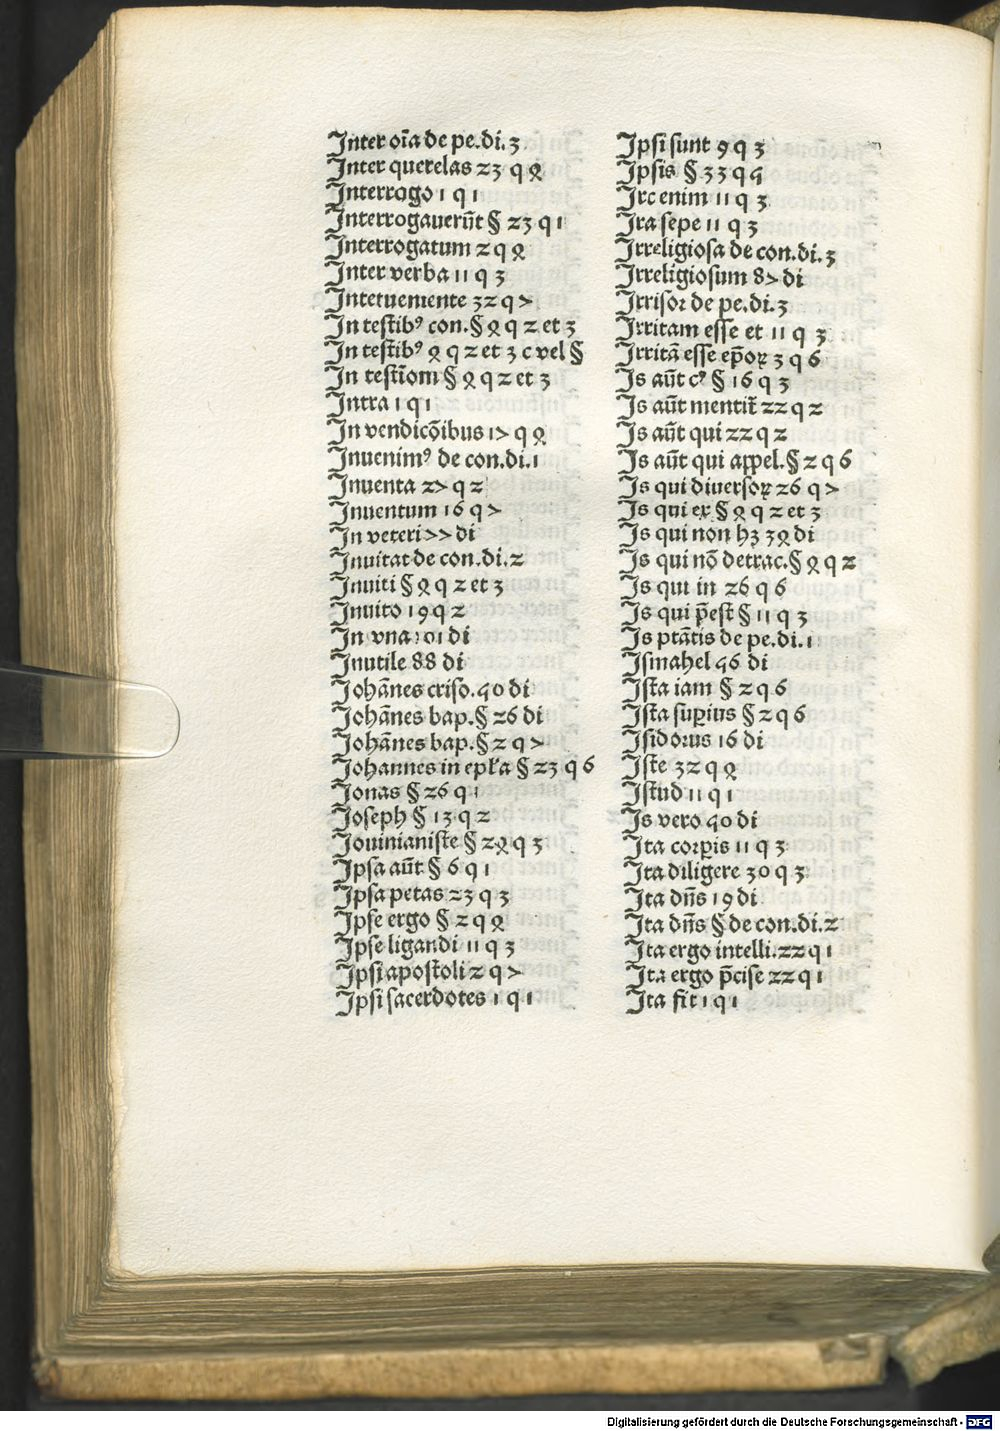 Inter oīa de pe.di.3
Inter querelas 23 q 4
Interrogo 1 q 1
Interrogauerūt § 23 q 1
Interrogatum 2 q 4
Inter verba 11 q 3
Interuemente 32 q 7
In testib⁹ con.§ 4 q 2 et 3
In testib⁹ 4 q 2 et 3 c vel §
In testīom § 4 q 2 et 3
Intra 1 q 1
In vendicōibus 17 q 4
Inuenim⁹ de con.di.1
Inuenta 27 q 2
Inuentum 16 q 7
In veteri 77 di
Inuitat de con.di.2
Inuiti § 4 q 2 et 3
Inuito 19 q 2
In vna 101 di
Inutile 88 di
Johānes criso.40 di
Johānes bap.§ 26 di
Johānes bap.§ 2 q 7
Johannes in epła § 23 q 6
Jonas § 26 q 1
Joseph § 13 q 2
Jouinianiste § 24 q 3
Ipsa aūt § 6 q 1
Ipsa petas 23 q 3
Ipse ergo § 2 q 4
Ipse ligandi 11 q 3
Ipsi apostoli 2 q 7
Ipsi sacerdotes 1 q 1
Ipsi sunt 9 q 3
Ipsis § 33 q 5
Irc enim 11 q 3
Ira sepe 11 q 3
Irreligiosa de con.di.3
Irreligiosum 87 di
Irrisor de pe.di.3
Irritam esse et 11 q 3
Irritā esse ep̄oꝝ 3 q 6
Is aūt c⁹ § 16 q 3
Is aūt mentit̄ 22 q 2
Is aūt qui 22 q 2
Is aūt qui appel.§ 2 q 6
Is qui diuersoꝝ 26 q 7
Is qui ex § 4 q 2 et 3
Is qui non hꝫ 34 di
Is qui nō detrac.§ 4 q 2
Is qui in 26 q 6
Is qui p̄est § 11 q 3
Is ptātis de pe.di.1
Ismahel 56 di
Ista iam § 2 q 6
Ista suꝑius § 2 q 6
Isidorus 16 di
Iste 32 q 4
Istud 11 q 1
Is vero 50 di
Ita corꝑis 11 q 3
Ita diligere 30 q 3
Ita dn̄s 19 di
Ita dn̄s § de con.di.2
Ita ergo intelli.22 q 1
Ita ergo p̄cise 22 q 1
Ita fit 1 q 1
Digitalisierung gefördert durch die Deutsche Forschungsgemeinschaft - DFG